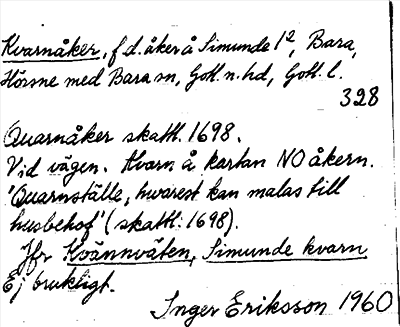 Kvarnåker, f.d. åker å Simunde 1², Bara,
Hörsne med Bara sn, Gotl. n. hd, Gotl. l.
328
Quarnåker skattl. 1698.
Vid vägen. Kvarn å kartan NO åkern.
'Quarnställe, hwarest kan malas till
husbehof' (skattl. 1698).
Jfr Kvännväten, Simunde kvarn
Ej brukligt.
Inger Eriksson 1960